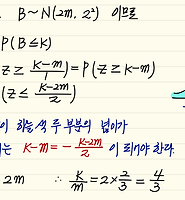 B~N(2m, 2²) 이므로
P(B≤k)
Z ≥ (k-m)/1) = P(Z ≥ k-m)
(Z ≤ (k-2m)/2)
이 하늘색 두 부분의 넓이가
는 k-m = - (k-2m)/2 이 되어야 한다.
2m ∴ k/m = 2×2/3 = 4/3